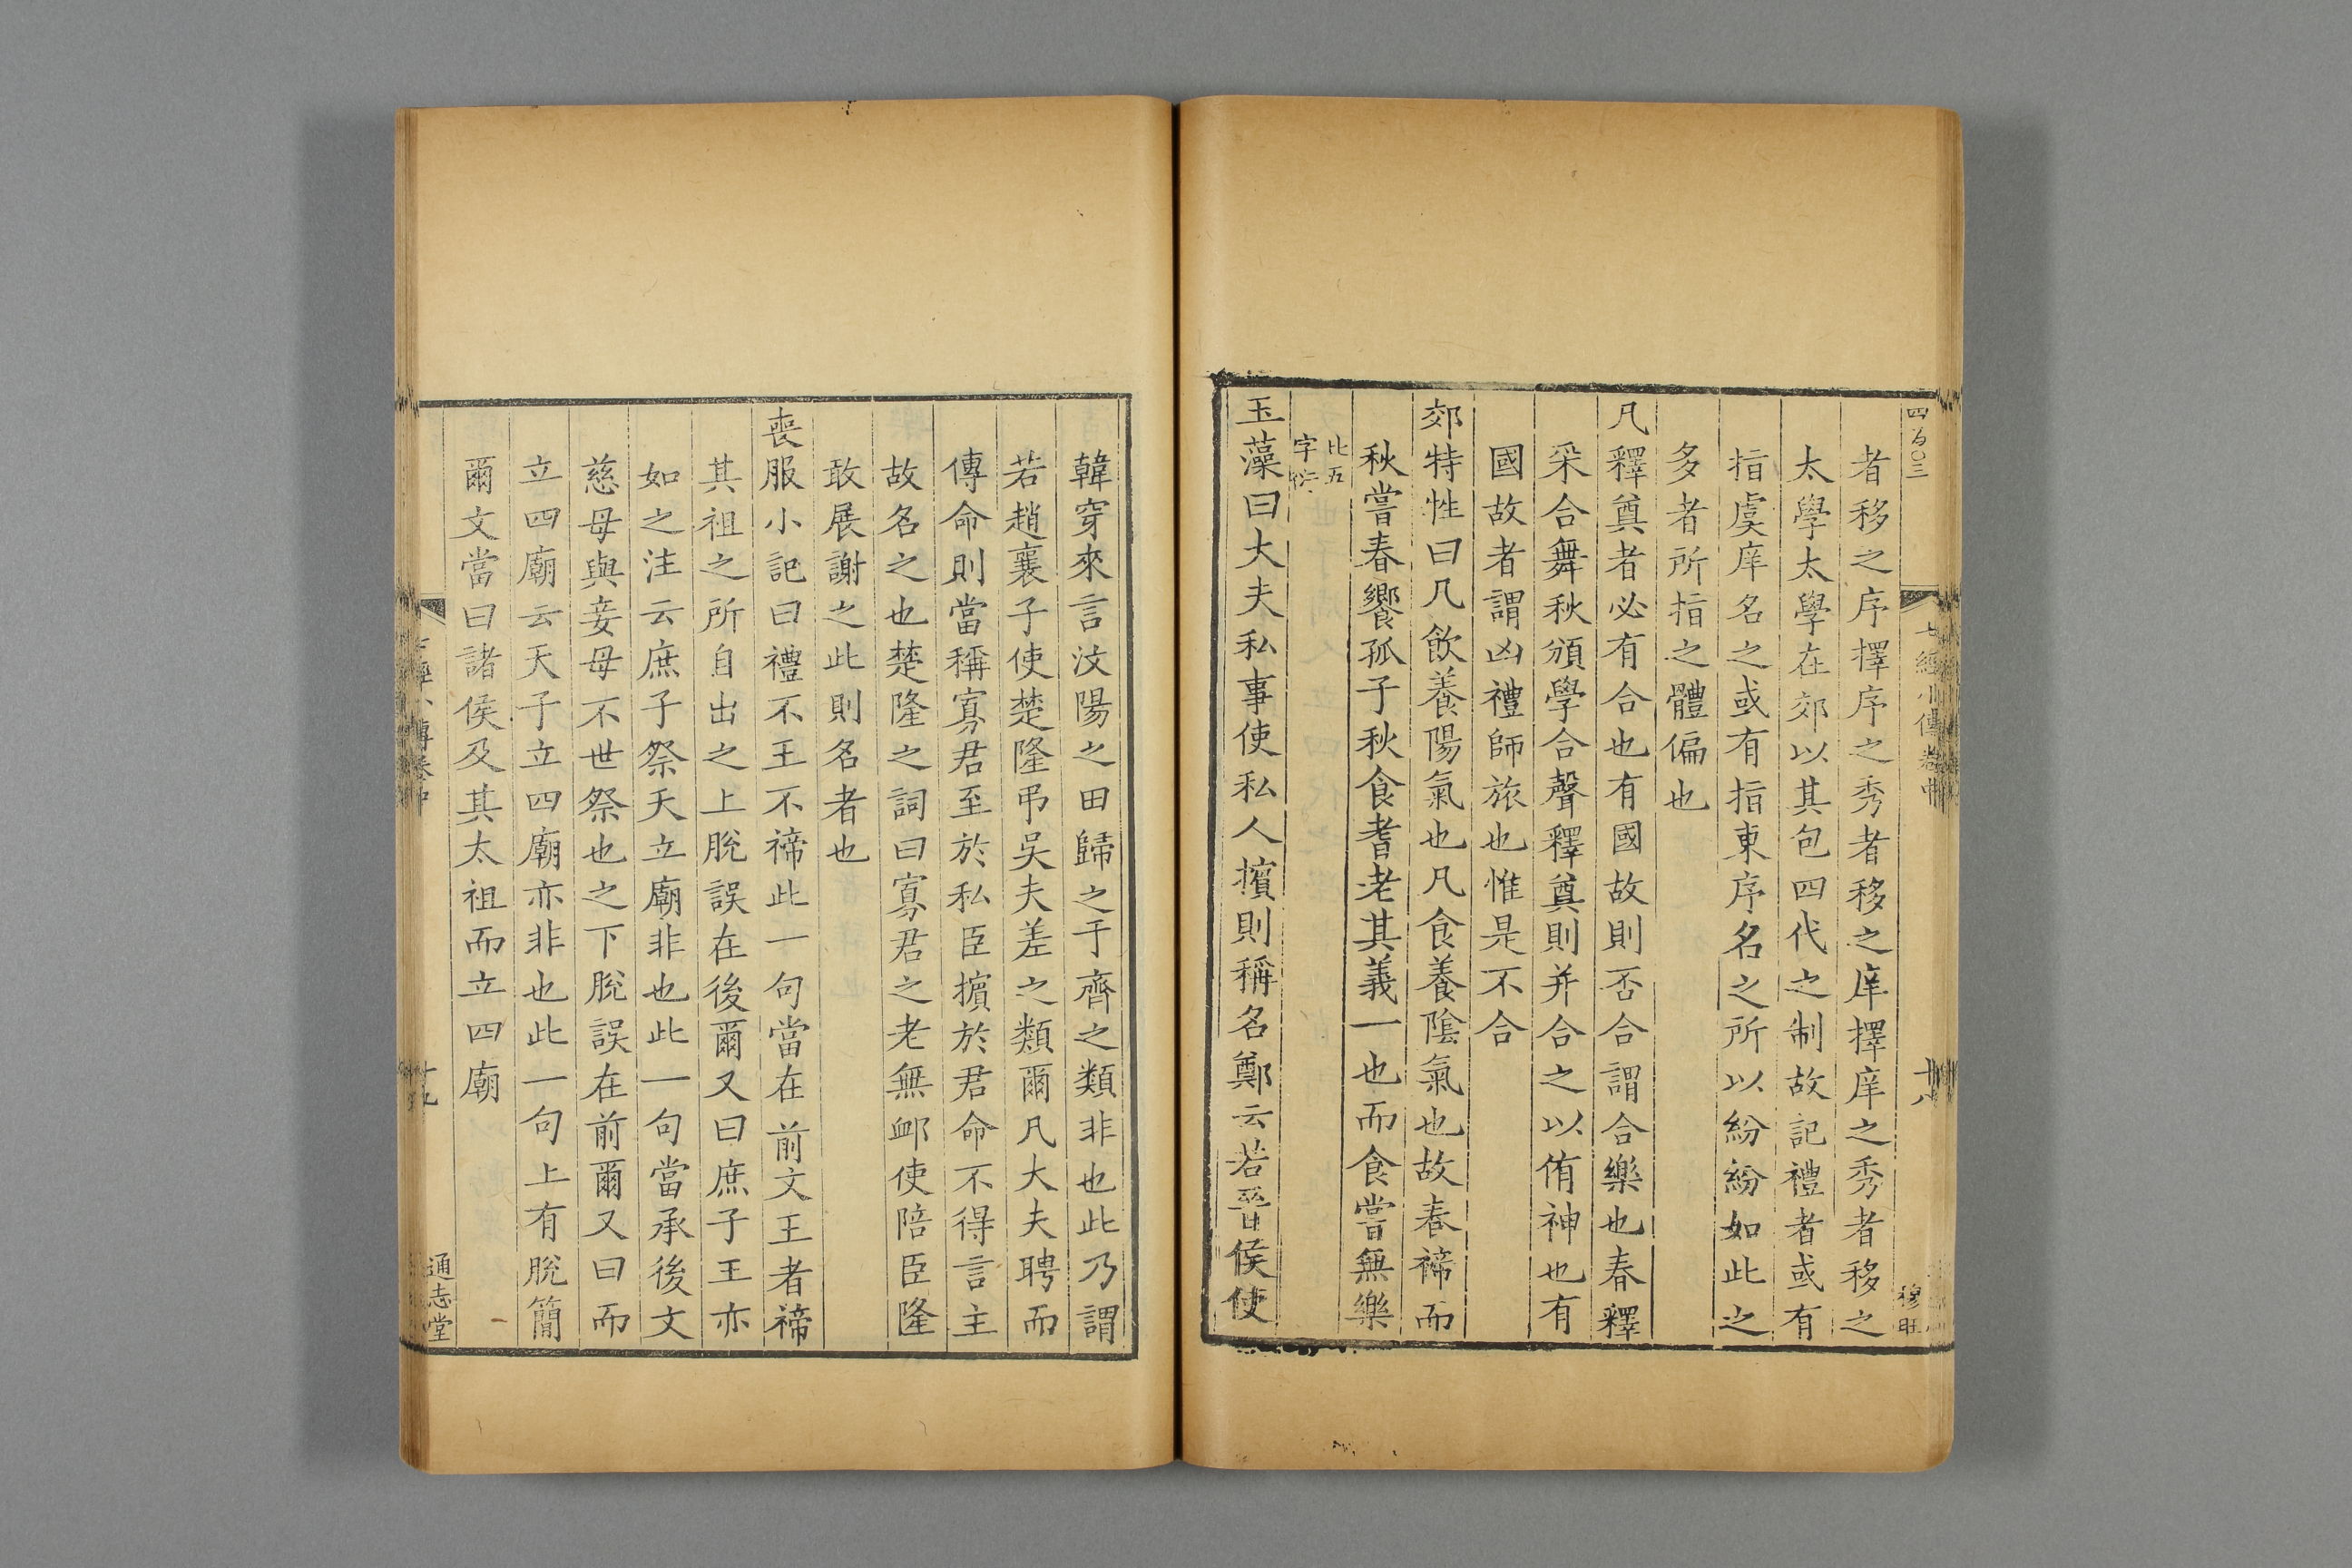 四百〇三
七經小傳卷中
十八
穆旺
者移之序擇序之秀者移之庠擇庠之秀者移之
太學太學在郊以其包四代之制故記禮者或有
指虞庠名之或有指東序名之所以紛紛如此之
多者所指之體偏也
凡釋奠者必有合也有國故則否合謂合樂也春釋
采合舞秋頒學合聲釋奠則并合之以侑神也有
國故者謂凶禮師旅也惟是不合
郊特牲曰凡飲養陽氣也凡食養陰氣也故春禘而
秋嘗春饗孤子秋食耆老其義一也而食嘗無樂
比五
字衍
玉藻曰大夫私事使私人擯則稱名鄭云若晉侯使
韓穿來言汶陽之田歸之于齊之類非也此乃謂
若趙襄子使楚隆弔吳夫差之類爾凡大夫聘而
傳命則當稱寡君至於私臣擯於君命不得言主
故名之也楚隆之詞曰寡君之老無卹使陪臣隆
敢展謝之此則名者也
喪服小記曰禮不王不禘此一句當在前文王者禘
其祖之所自出之上脫誤在後爾又曰庶子王亦
如之注云庶子祭天立廟非也此一句當承後文
慈母與妾母不世祭也之下脫誤在前爾又曰而
立四廟云天子立四廟亦非也此一句上有脫簡
爾文當曰諸侯及其太祖而立四廟
十九
通志堂